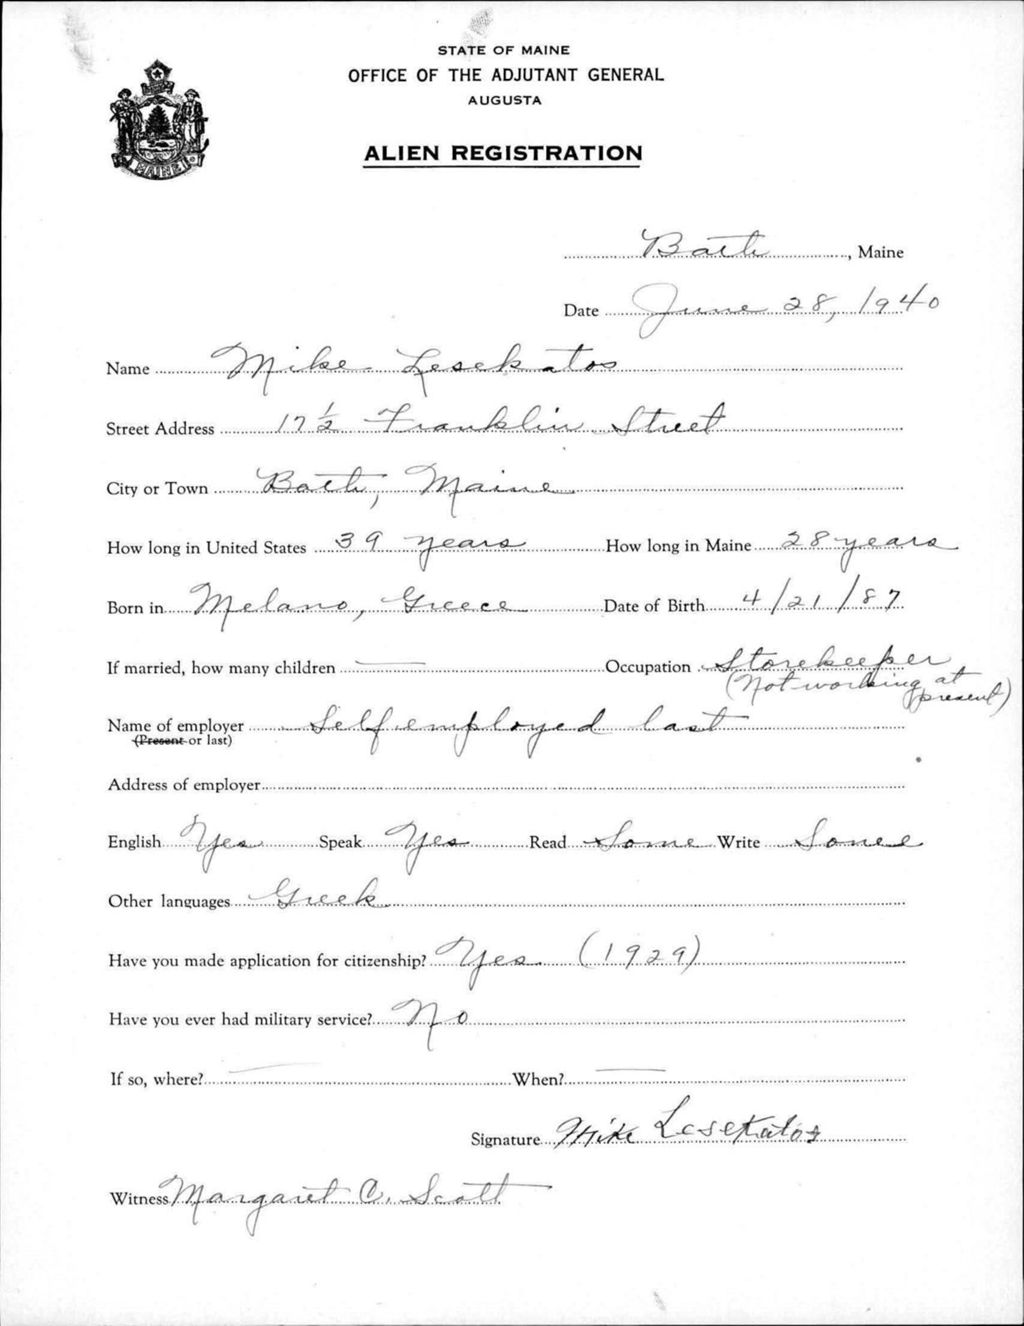 STATE OF MAINE
OFFICE OF THE ADJUTANT GENERAL
AUGUSTA
ALIEN REGISTRATION
MAINE
Bath, Maine
Date June 28, 1940
Name Mike Lesekatos
Street Address 17 1/2 Franklin Street
City or Town Bath, Maine
How long in United States 39 years How long in Maine 28 years
Born in Melano, Greece Date of Birth 4/21/87
If married, how many children — Occupation Storekeeper
(Not working at present)
Name of employer Self employed last
(Present or last)
Address of employer
English Yes Speak Yes Read Some Write Some
Other languages Greek
Have you made application for citizenship? Yes (1929)
Have you ever had military service? No
If so, where? — When? —
Signature Mike Lesekatos
Witness Margaret C. Scott